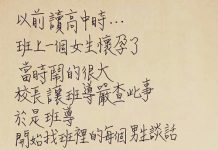 以前讀高中時…
班上一個女生懷孕了
當時鬧的很大
校長讓班導嚴查此事
於是班導
開始找班裡的每個男生談話